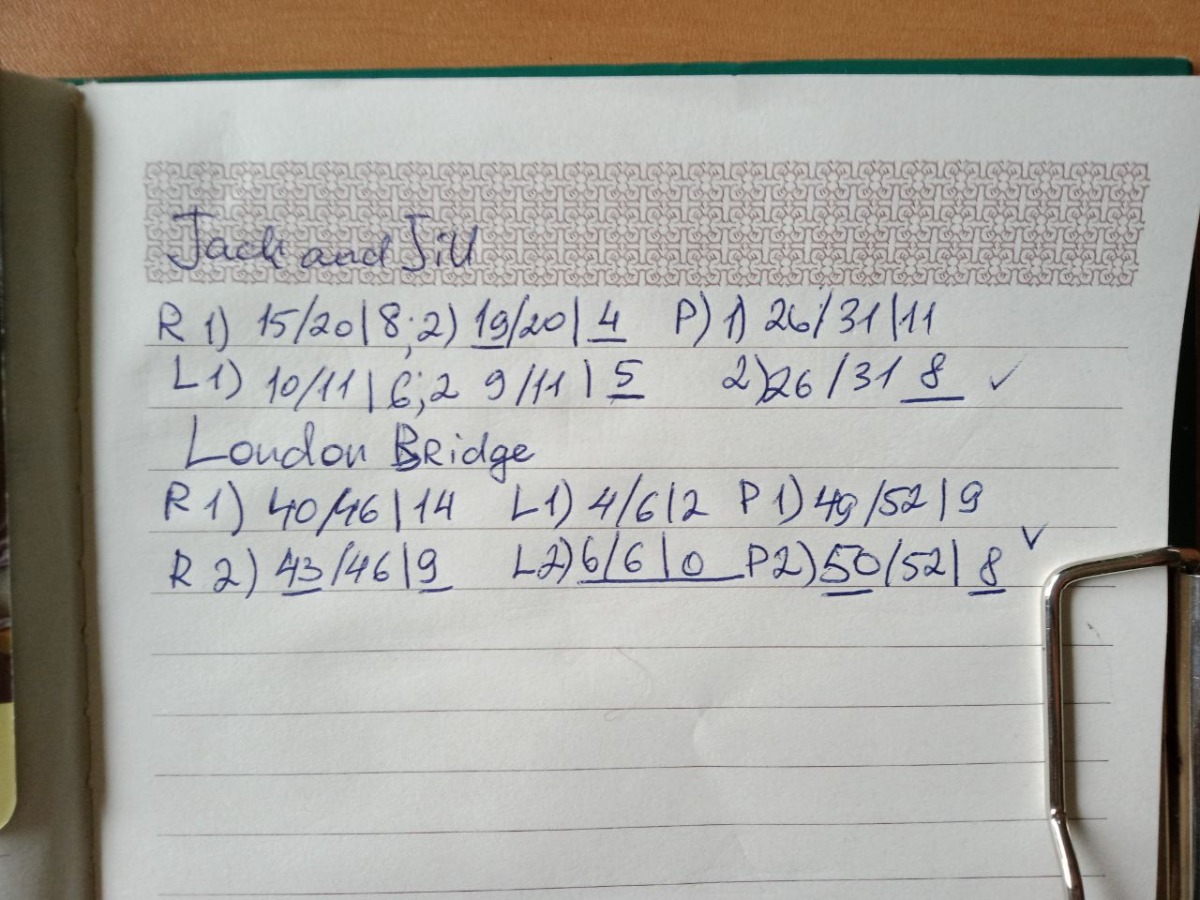 Jack and Jill
R 1) 15/20|8; 2) 19/20|4 P) 1) 26/31|11
L 1) 10/11|6; 2 9/11|5 2) 26/31 8 ✓
London Bridge
R 1) 40/46|14 L 1) 4/6|2 P 1) 49/52|9
R 2) 43/46|9 L 2) 6/6|0 P 2) 50/52|8 ✓